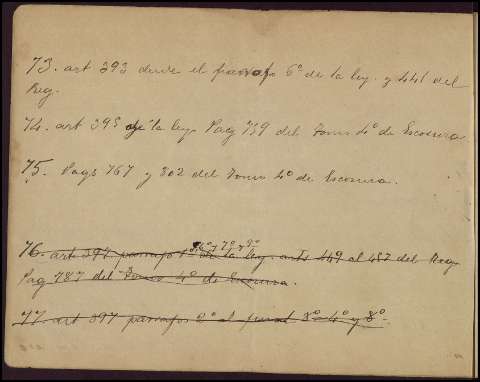 73. art 393 desde el parrafo 6º de la ley. y 441 del
Reg.
74. art 395 de la ley Pag 759 del Tomo 4º de Escosura.
75. Pags 767 y 802 del Tomo 4º de Escosura.
76. art 397 parrafos 1º 6º y 7º y 9º de la ley. arts 449 al 487 del Reg
Pag 787 del Tomo 4º de Escosura.
77. art 397 parrafos 2º al final 3º 4º y 8º.